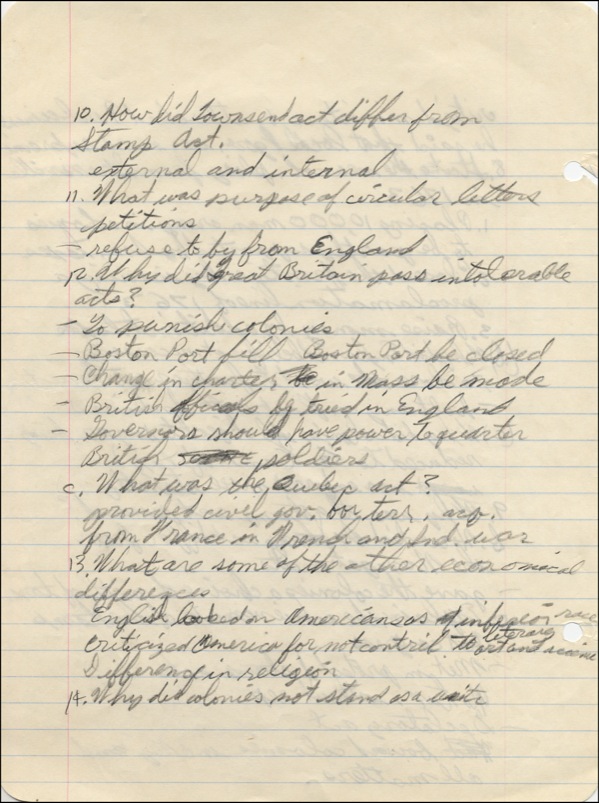 10. How did Townsend act differ from
Stamp Act.
external and internal
11. What was purpose of circular letters
petitions
– refuse to by from England
12. Why did great Britain pass intolerable
acts?
– To punish colonies
– Boston Port bill Boston Port be closed
– Change in charter in Mass be made
– British officials by tried in England
– Governors should have power to quarter
British soldiers
c. What was the Quebec act?
provided civil gov. for terr. acq.
from France in French and Ind. war
13. What are some of the other economical
differences
English looked on Americans as inferior race
criticized America for not contrib to literary art and science
Difference in religion
14. Why did colonies not stand as a unit